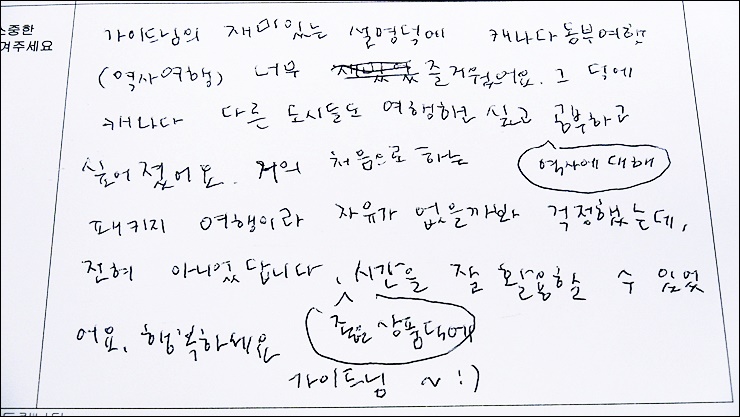 소중한
겨주세요
가이드님의 재미있는 설명덕에 캐나다동부여행
(역사여행) 너무 재밌었 즐거웠어요. 그 덕에
캐나다 다른 도시들도 여행하고 싶고 공부하고
역사에 대해
싶어졌어요. 거의 처음으로 하는
패키지 여행이라 자유가 없을까봐 걱정했는데,
전혀 아니었답니다. 시간을 잘 활용할 수 있었
좋은 상품덕에
어요. 행복하세요
가이드님 ~ :)